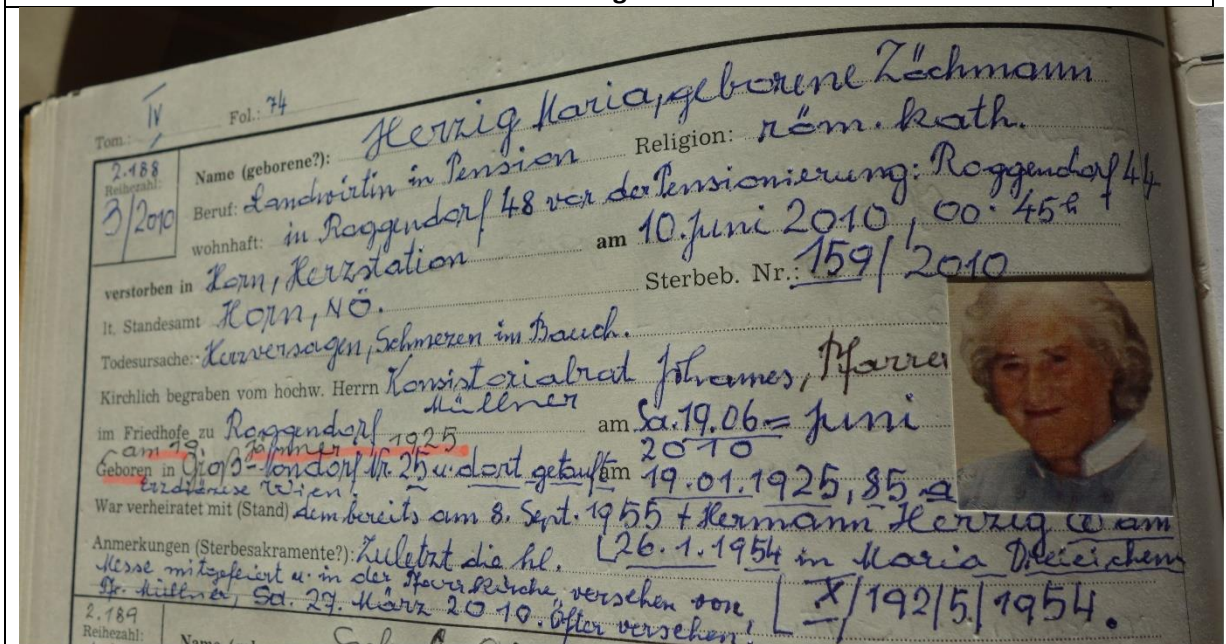 Tom.: IV Fol.: 74
2.188
Reihezahl:
3/2010
Name (geborene?): Herzig Maria, geborene Zöchmann
Beruf: Landwirtin in Pension Religion: röm. kath.
wohnhaft: in Roggendorf 48 vor der Pensionierung: Roggendorf 44
verstorben in Horn, Herzstation am 10. Juni 2010, 00:45h
lt. Standesamt Horn, NÖ. Sterbeb. Nr.: 159/2010
Todesursache: Herzversagen, Schmerzen im Bauch.
Kirchlich begraben vom hochw. Herrn Konsistorialrat Johannes, Pfarrer
Müllner
im Friedhofe zu Roggendorf am Sa. 19.06 = Juni
2010
am 19. Jänner 1925
Geboren in Groß- Nr. 25 u. dort getauft am 19.01.1925, 85
Erzdiözese Wien.
War verheiratet mit (Stand) dem bereits am 8. Sept. 1955 + Hermann Herzig ⚭ am
Anmerkungen (Sterbesakramente?): Zuletzt die hl. 26.1.1954 in Maria Dreieichen
Messe mitgefeiert u. in der Pfarrkirche versehen von X/192/5/1954.
Pf. Müllner, Sa. 27. März 2010. Öfter versehen.
2.189
Reihezahl: